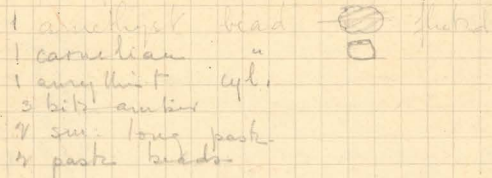 1 amethyst bead fluted
1 carnelian "
1 amythist cyl.
3 bits amber
2 sm. long paste
2 paste beads